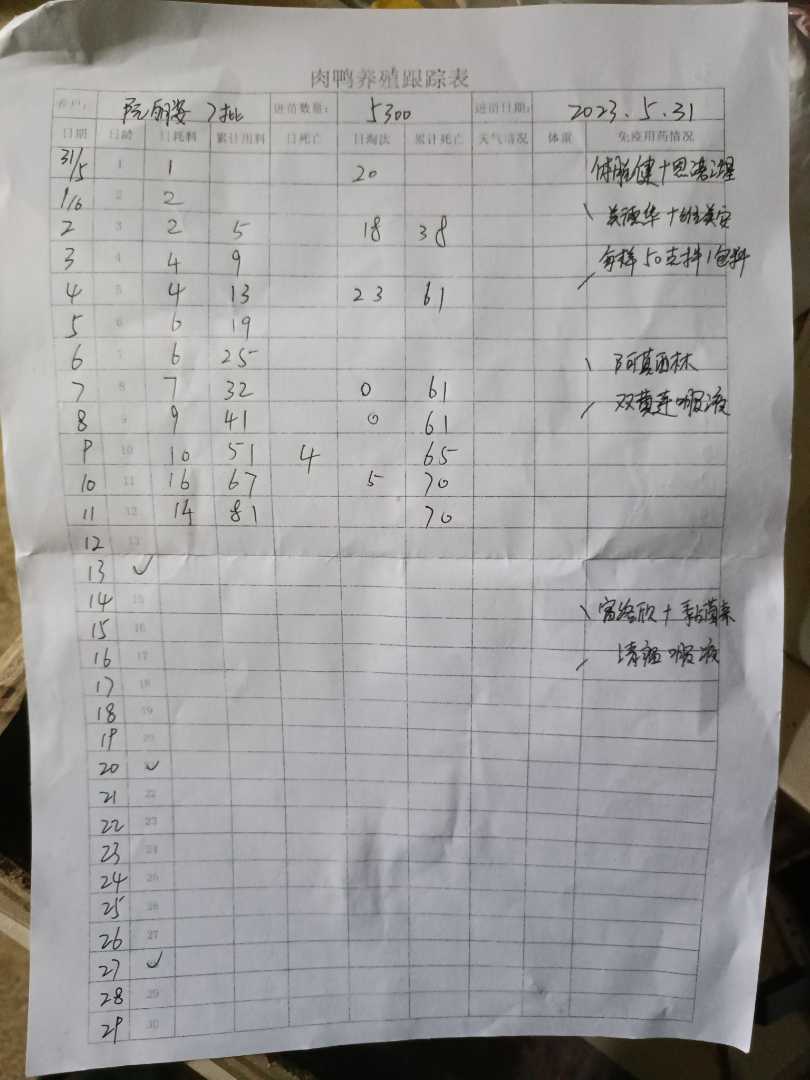 肉鸭养殖跟踪表
客户: 阮丽姿 7批 进苗数量: 5300 进苗日期: 2023.5.31
日期 日龄 日耗料 累计用料 日死亡 日淘汰 累计死亡 天气情况 体重 免疫用药情况
31/5 1 1 20
1/6 2 2
2 3 2 5 18 38
3 4 4 9 每样50支拌1包料
4 5 4 13 23 61
5 6 6 19
6 7 6 25 阿莫西林
7 8 7 32 0 61
8 9 9 41 0 61 双黄连口服液
9 10 10 51 4 65
10 11 16 67 5 70
11 12 14 81 70
12 13
13 ✓
14 15
15 16
16 17 口服液
17 18
18 19
19 20
20 ✓
21 22
22 23
23 24
24 25
25 26
26 27
27 ✓
28 29
29 30